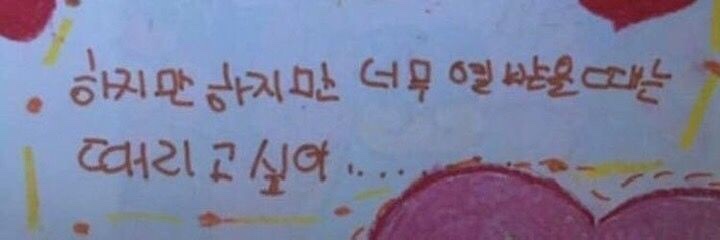 하지만 하지만 너무 열 받을 때는
때리고 싶어....